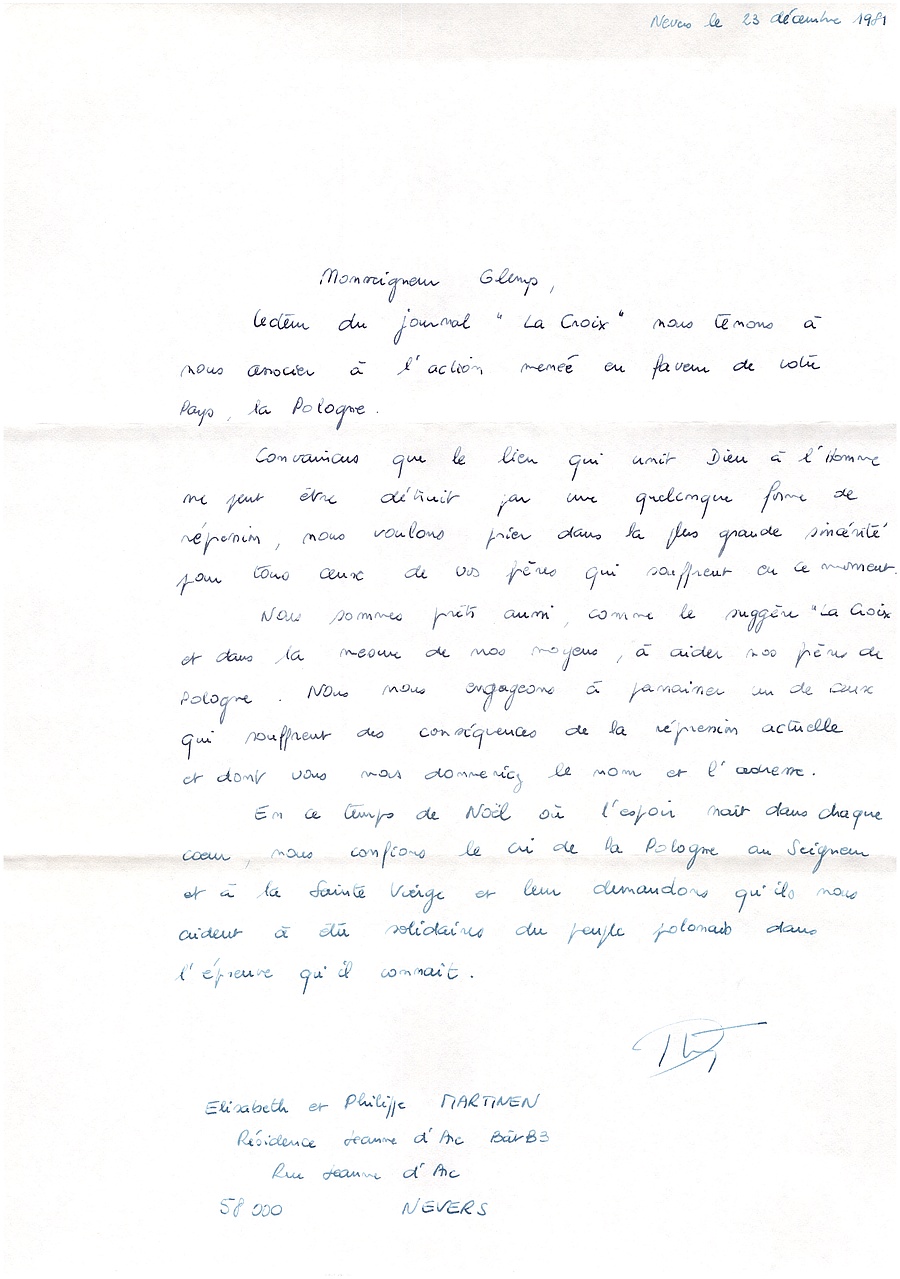 Nevers le 23 décembre 1981
Monseigneur Glemp,
lecteur du journal "La Croix" nous tenons à
nous associer à l'action menée en faveur de votre
Pays, la Pologne.
Convaincus que le lien qui unit Dieu à l'Homme
ne peut être détruit par une quelconque forme de
répression, nous voulons prier dans la plus grande sincérité
pour tous ceux de vos frères qui souffrent en ce moment.
Nous sommes prêts aussi, comme le suggère "La Croix
et dans la mesure de nos moyens, à aider nos frères de
Pologne. Nous nous engageons à parrainer un de ceux
qui souffrent des conséquences de la répression actuelle
et dont vous nous donneriez le nom et l'adresse.
En ce temps de Noël où l'espoir naît dans chaque
coeur, nous confions le cri de la Pologne au Seigneur
et à la Sainte Vierge et leur demandons qu'ils nous
aident à être solidaires du peuple polonais dans
l'épreuve qu'il connait.
Elisabeth et Philippe MARTINEN
Résidence Jeanne d'Arc Bât B3
Rue Jeanne d'Arc
58 000 NEVERS